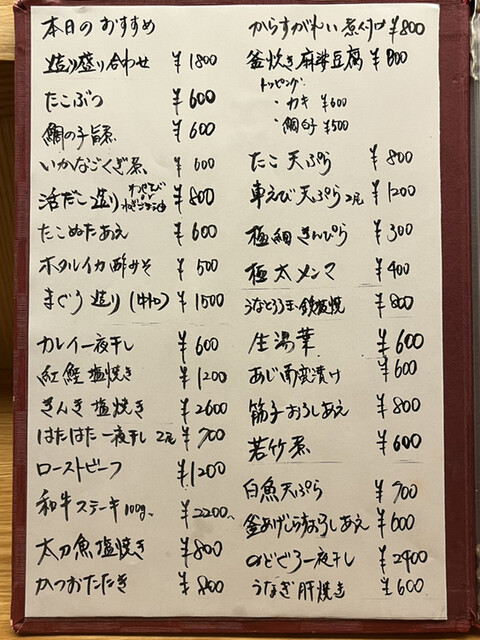 本日のおすすめ
造り盛り合わせ ¥1800
たこぶつ ¥600
鯛の子旨煮 ¥600
いかなごくぎ煮 ¥600
活だこ造り わさび or ねぎごま油 ¥800
たこぬたあえ ¥600
ホタルイカ酢みそ ¥500
まぐろ造り(中トロ) ¥1500
カレイ一夜干し ¥600
紅鮭塩焼き ¥1200
きんき塩焼き ¥2600
はたはた一夜干し 2尾 ¥700
ローストビーフ ¥1200
和牛ステーキ100g〜 ¥2200〜
太刀魚塩焼き ¥800
かつおたたき ¥800
からすがれい煮付け ¥800
釜炊き麻婆豆腐 ¥800
トッピング
・カキ ¥600
・鯛白子 ¥500
たこ天ぷら ¥800
車えび天ぷら 2尾 ¥1200
極細きんぴら ¥300
極太メンマ ¥400
うなとろろ玉鉄板焼 ¥800
生湯葉 ¥600
あじ南蛮漬け ¥600
筋子おろしあえ ¥800
若竹煮 ¥600
白魚天ぷら ¥700
釜あげしらすおろしあえ ¥600
のどぐろ一夜干し ¥2400
うなぎ肝焼き ¥600